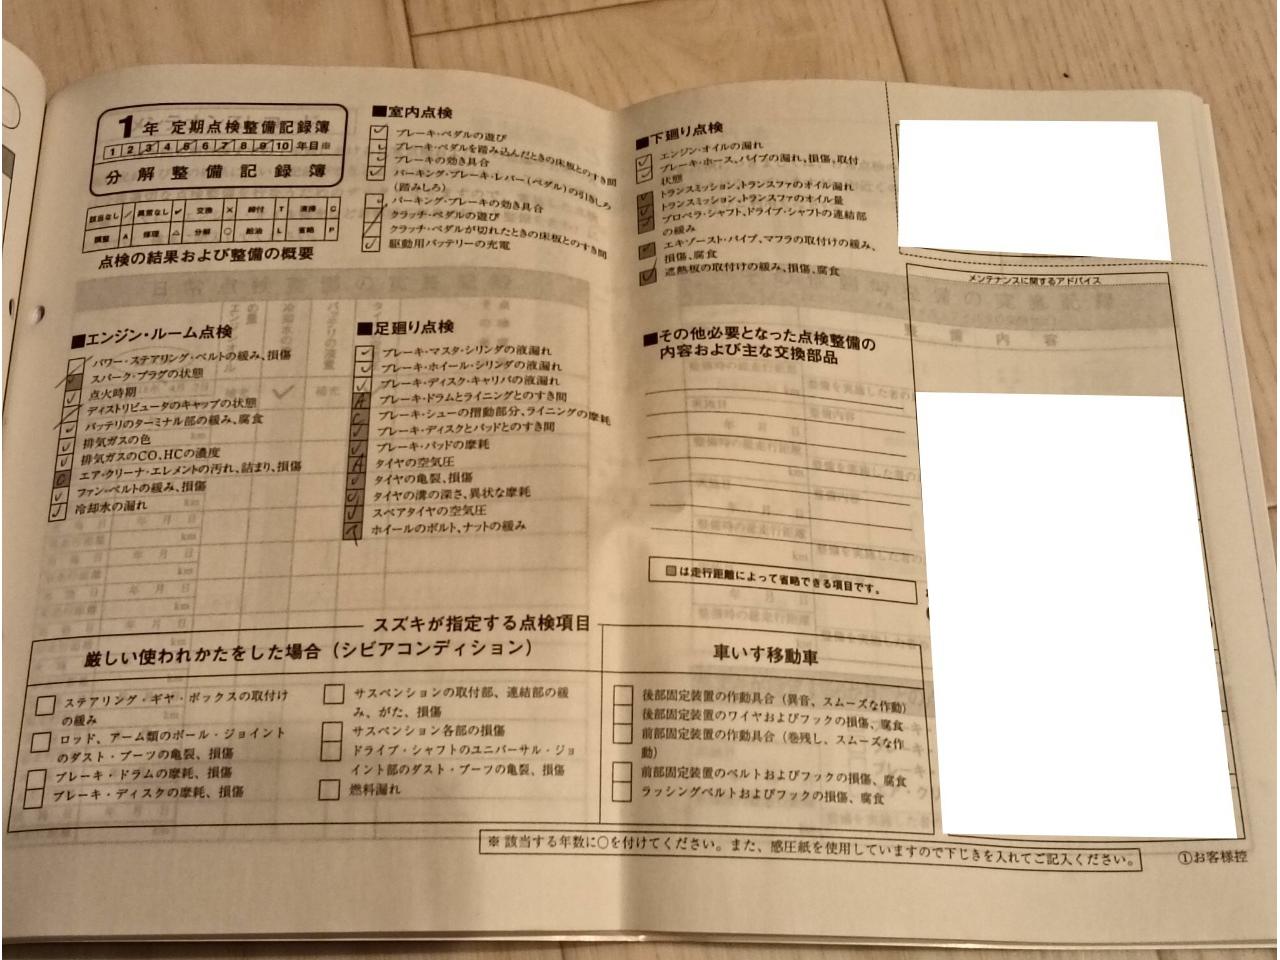 1年 定期点検整備記録簿
1 2 3 4 5 6 7 8 9 10 年目※
分解整備記録簿
該当なし / 異常なし レ 交換 × 締付 T 清掃 C
調整 A 修理 △ 分解 ○ 給油 L 省略 P
点検の結果および整備の概要
■エンジン・ルーム点検
パワー・ステアリング・ベルトの緩み、損傷
スパーク・プラグの状態
点火時期
ディストリビュータのキャップの状態
バッテリのターミナル部の緩み、腐食
排気ガスの色
排気ガスのCO、HCの濃度
エア・クリーナ・エレメントの汚れ、詰まり、損傷
ファン・ベルトの緩み、損傷
冷却水の漏れ
■室内点検
ブレーキ・ペダルの遊び
ブレーキ・ペダルを踏み込んだときの床板とのすき間
ブレーキの効き具合
パーキング・ブレーキ・レバー(ペダル)の引きしろ
(踏みしろ)
パーキング・ブレーキの効き具合
クラッチ・ペダルの遊び
クラッチ・ペダルが切れたときの床板とのすき間
駆動用バッテリーの充電
■足廻り点検
ブレーキ・マスタ・シリンダの液漏れ
ブレーキ・ホイール・シリンダの液漏れ
ブレーキ・ディスク・キャリパの液漏れ
ブレーキ・ドラムとライニングとのすき間
ブレーキ・シューの摺動部分、ライニングの摩耗
ブレーキ・ディスクとパッドとのすき間
ブレーキ・パッドの摩耗
タイヤの空気圧
タイヤの亀裂、損傷
タイヤの溝の深さ、異状な摩耗
スペアタイヤの空気圧
ホイールのボルト、ナットの緩み
■下廻り点検
エンジン・オイルの漏れ
ブレーキ・ホース、パイプの漏れ、損傷、取付
状態
トランスミッション、トランスファのオイル漏れ
トランスミッション、トランスファのオイル量
プロペラ・シャフト、ドライブ・シャフトの連結部
の緩み
エキゾースト・パイプ、マフラの取付けの緩み、
損傷、腐食
遮熱板の取付けの緩み、損傷、腐食
■その他必要となった点検整備の
内容および主な交換部品
■は走行距離によって省略できる項目です。
メンテナンスに関するアドバイス
スズキが指定する点検項目
厳しい使われかたをした場合(シビアコンディション)
ステアリング・ギヤ・ボックスの取付け
の緩み
ロッド、アーム類のボール・ジョイント
のダスト・ブーツの亀裂、損傷
ブレーキ・ドラムの摩耗、損傷
ブレーキ・ディスクの摩耗、損傷
サスペンションの取付部、連結部の緩
み、がた、損傷
サスペンション各部の損傷
ドライブ・シャフトのユニバーサル・ジョ
イント部のダスト・ブーツの亀裂、損傷
燃料漏れ
車いす移動車
後部固定装置の作動具合(異音、スムーズな作動)
後部固定装置のワイヤおよびフックの損傷、腐食
前部固定装置の作動具合(巻残し、スムーズな作
動)
前部固定装置のベルトおよびフックの損傷、腐食
ラッシングベルトおよびフックの損傷、腐食
※ 該当する年数に○を付けてください。また、感圧紙を使用していますので下じきを入れてご記入ください。
①お客様控